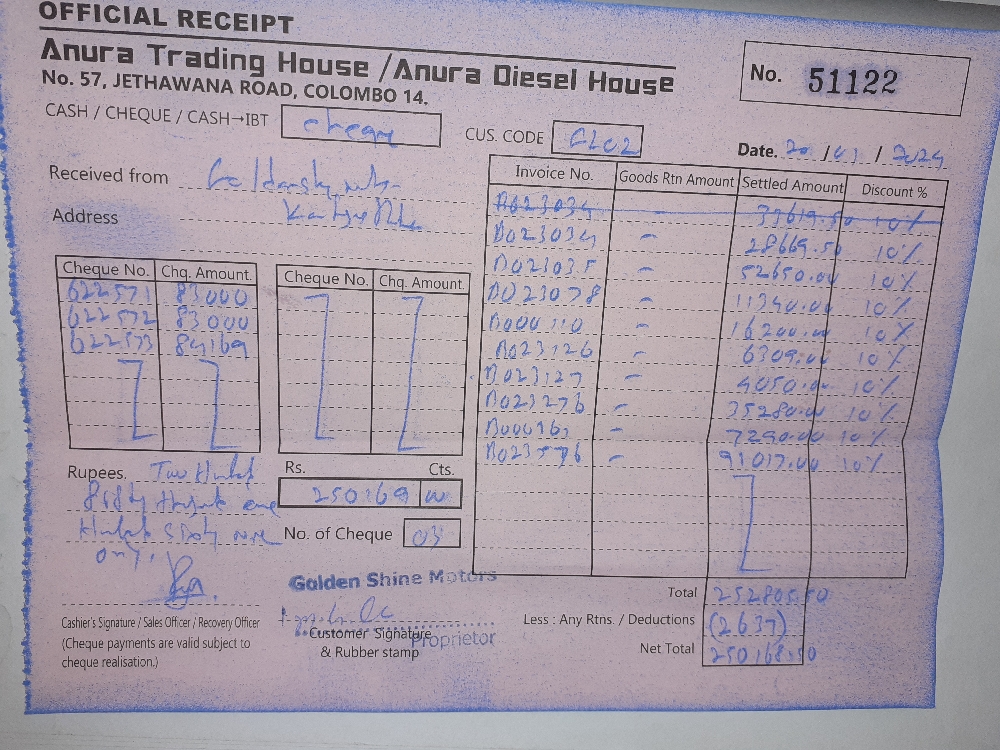 OFFICIAL RECEIPT
Anura Trading House /Anura Diesel House
No. 57, JETHAWANA ROAD, COLOMBO 14.
No. 51122
CASH / CHEQUE / CASH→IBT cheque
CUS. CODE GL02
Date. 20 / 01 / 2024
Received from
Address
Invoice No. Goods Rtn Amount Settled Amount Discount %
A023034 – 33619.50 10%
A023034 – 28669.50 10%
A023035 – 52650.00 10%
A023078 – 11340.00 10%
A000110 – 16200.00 10%
A023126 – 6309.00 10%
A023127 – 4050.00 10%
A023276 – 35280.00 10%
7290.00 10%
A023576 – 91017.00 10%
Cheque No. Chq. Amount.
622571 83000
622572 83000
622573 84169
Cheque No. Chq. Amount.
Rupees. Two Hundred
Fifty Thousand one
Hundred Sixty nine
only.
Rs. Cts.
250169 00
No. of Cheque 03
Golden Shine Motors
Proprietor
Customer Signature
& Rubber stamp
Cashier's Signature / Sales Officer / Recovery Officer
(Cheque payments are valid subject to
cheque realisation.)
Total 252805.50
Less : Any Rtns. / Deductions (2637)
Net Total 250168.50